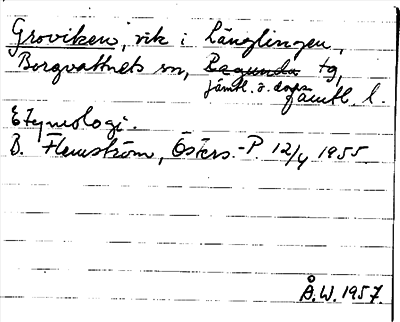 Groviken, vik i Länglingen,
Borgvattnets sn, Ragunda tg,
jämtl. ö. dops.
jämtl. l.
Etymologi.
B. Flemström, Östers.-P. 12/4 1955.
Å.W. 1957.